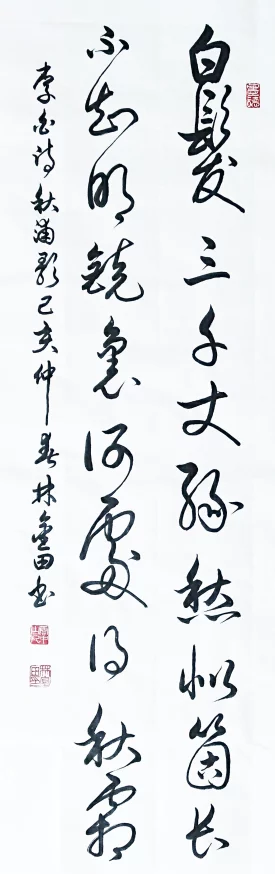 白髮三千丈緣愁似箇長
不知明鏡裏何處得秋霜
李白詩秋浦歌己亥仲春林金田书